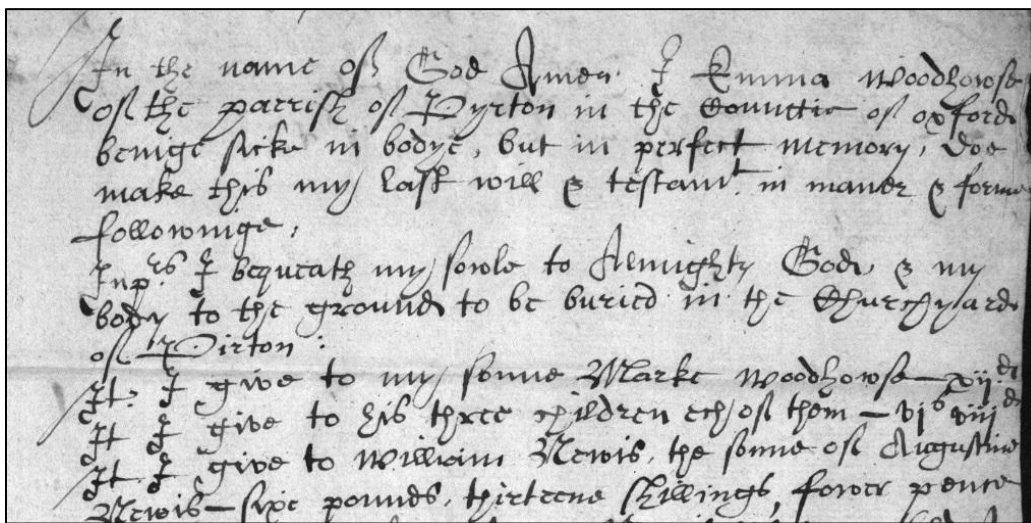 In the name of God Amen. I Emma Woodhowse
of the parrish of Pyrton in the Countie of oxford
beinge sicke in bodye, but in perfect memory, doe
make this my last will & testamt. in maner & forme
followinge,
Inp.rs I bequeath my sowle to Almighty God, & my
body to the ground to be buried in the Churchyard
of Pirton:
It. I give to my sonne Marke Woodhowse – xii d
It I give to his three children ech of them – vis viiid
It. I give to William Newis, the sonne of Augustine
Newis – sixe pounds, thirteene shillings, fower pence